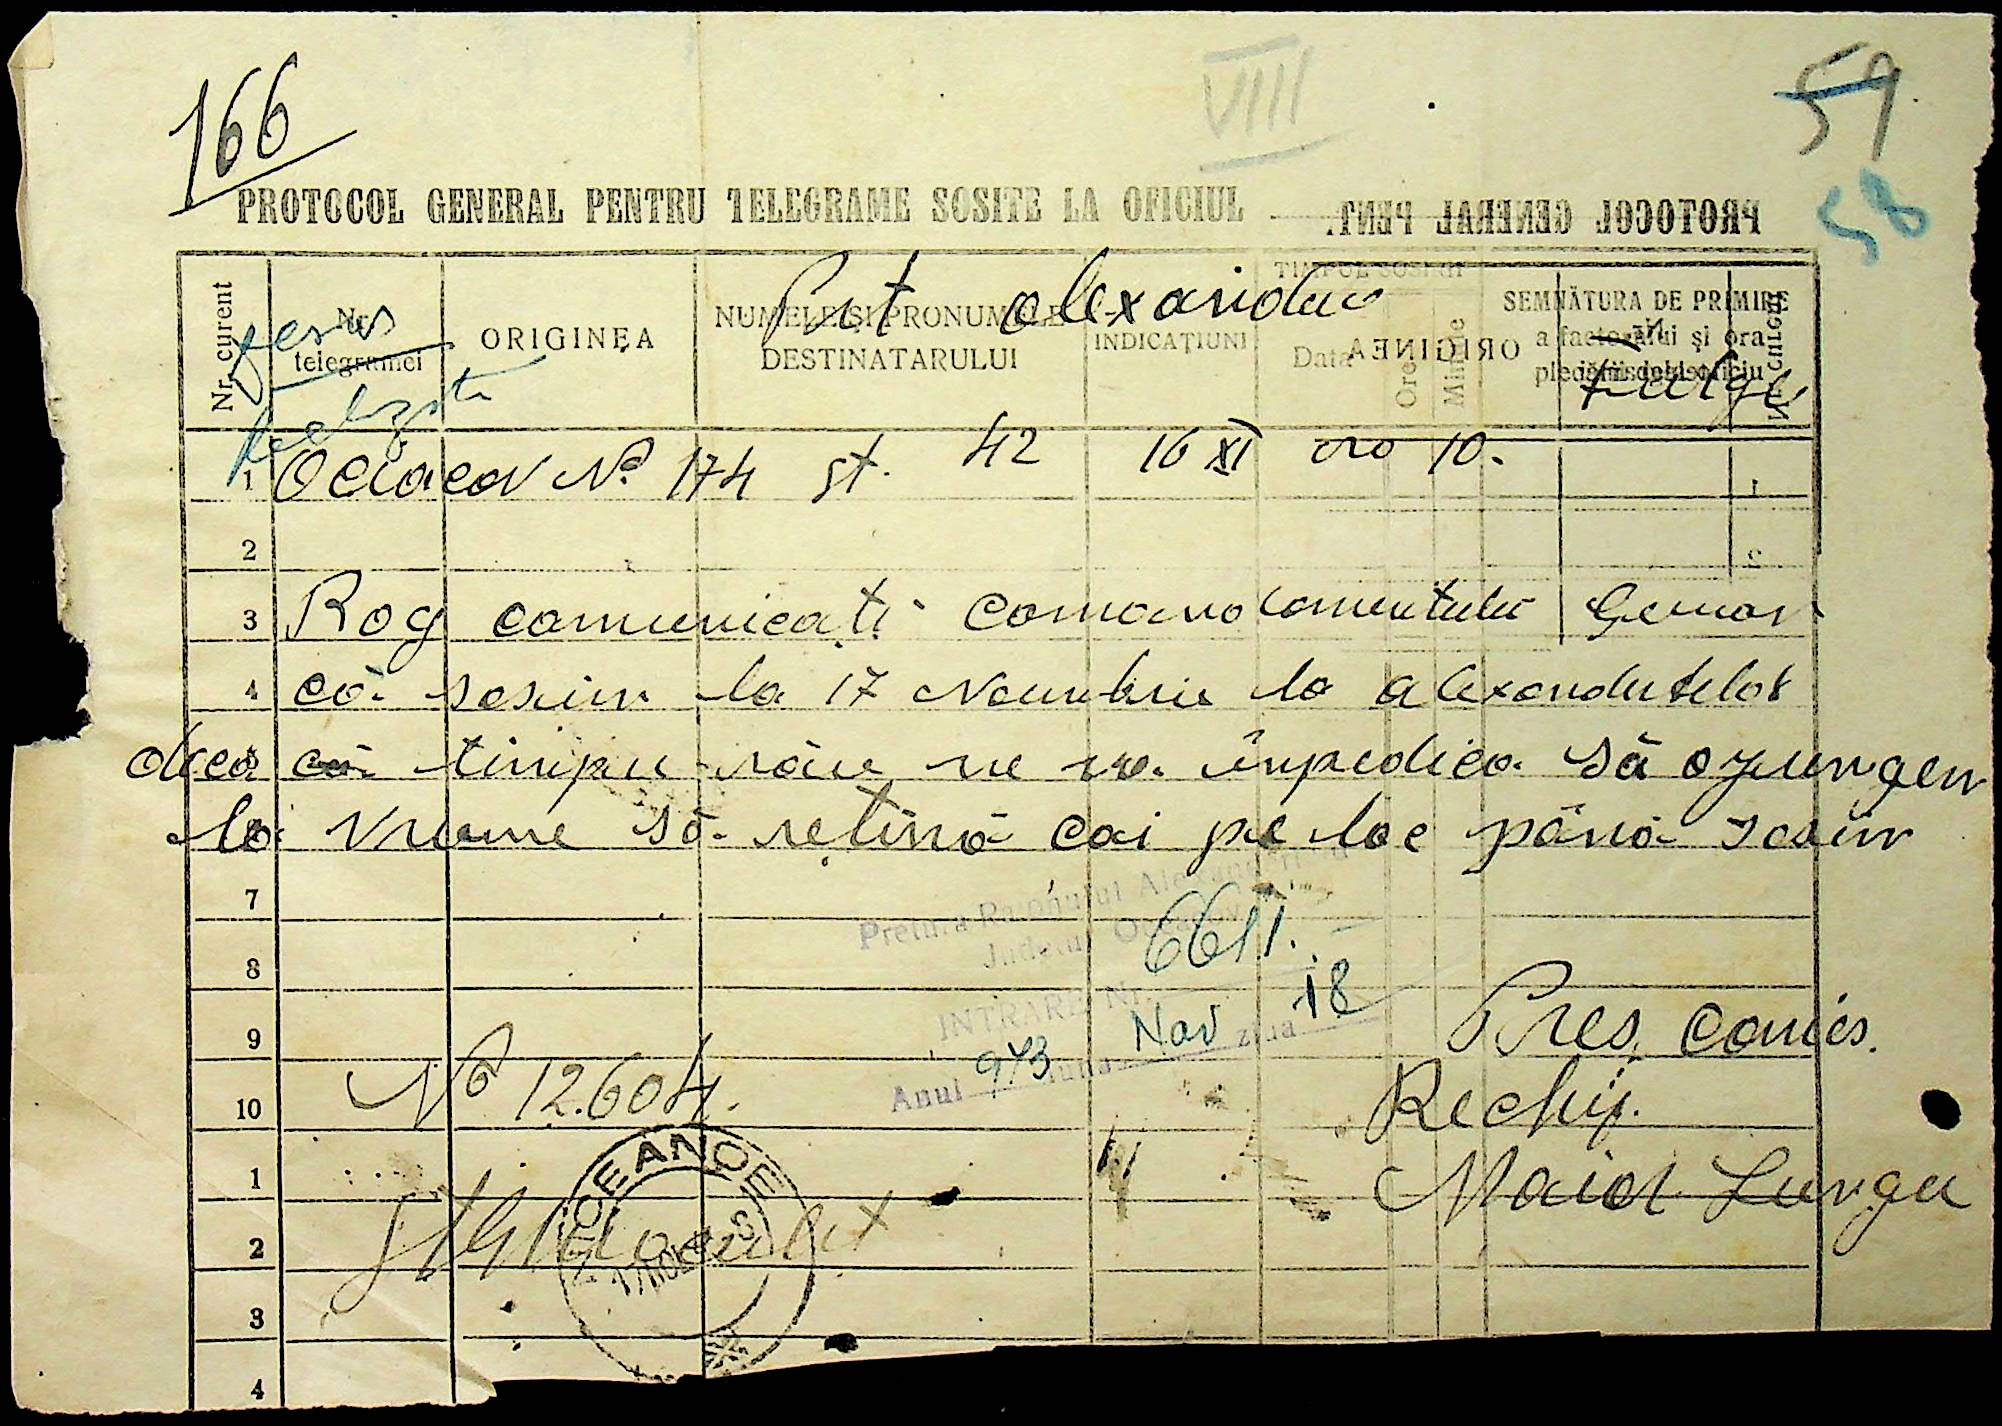 166
VIII
59
58
PROTOCOL GENERAL PENTRU TELEGRAME SOSITE LA OFICIUL
PROTOCOL GENERAL PENT.
Nr. curent
Nr. telegramei
ORIGINEA
NUMELE ȘI PRONUMELE DESTINATARULUI
INDICAȚIUNI
TIMPUL SOSIRII
Data
Ore
Minute
SEMNĂTURA DE PRIMIRE
a factorului și ora
plecării
oficiu
ORIGINEA
Nr. curent
Pret alexandru
1 Oceacov No. 174 st. 42 16 XI ora 10.
2
3 Rog comunicați comandamentului German
4 că sosim la 17 Noembrie la
dacă timpu rău ne va împedica să ajungem
la vreme să rețină cai pe loc până sosim
7
8
9
10
1
2
3
4
Pretura Raionului
Județul Oceacov
INTRARE Nr. 6611.
Anul 943 luna Nov ziua 18
Pres. comis.
Rechiz.
Maior Lungu
No 12.604.
17 NOE